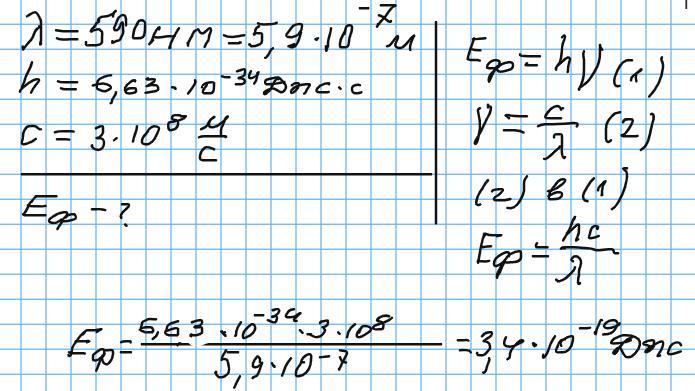 λ = 590 нм = 5,9 · 10⁻⁷ м
h = 6,63 · 10⁻³⁴ Дж · с
c = 3 · 10⁸ м/с
Eф - ?
Eф = hν (1)
ν = c/λ (2)
(2) в (1)
Eф = hc/λ
Eф = 6,63 · 10⁻³⁴ · 3 · 10⁸ / 5,9 · 10⁻⁷ = 3,4 · 10⁻¹⁹ Дж